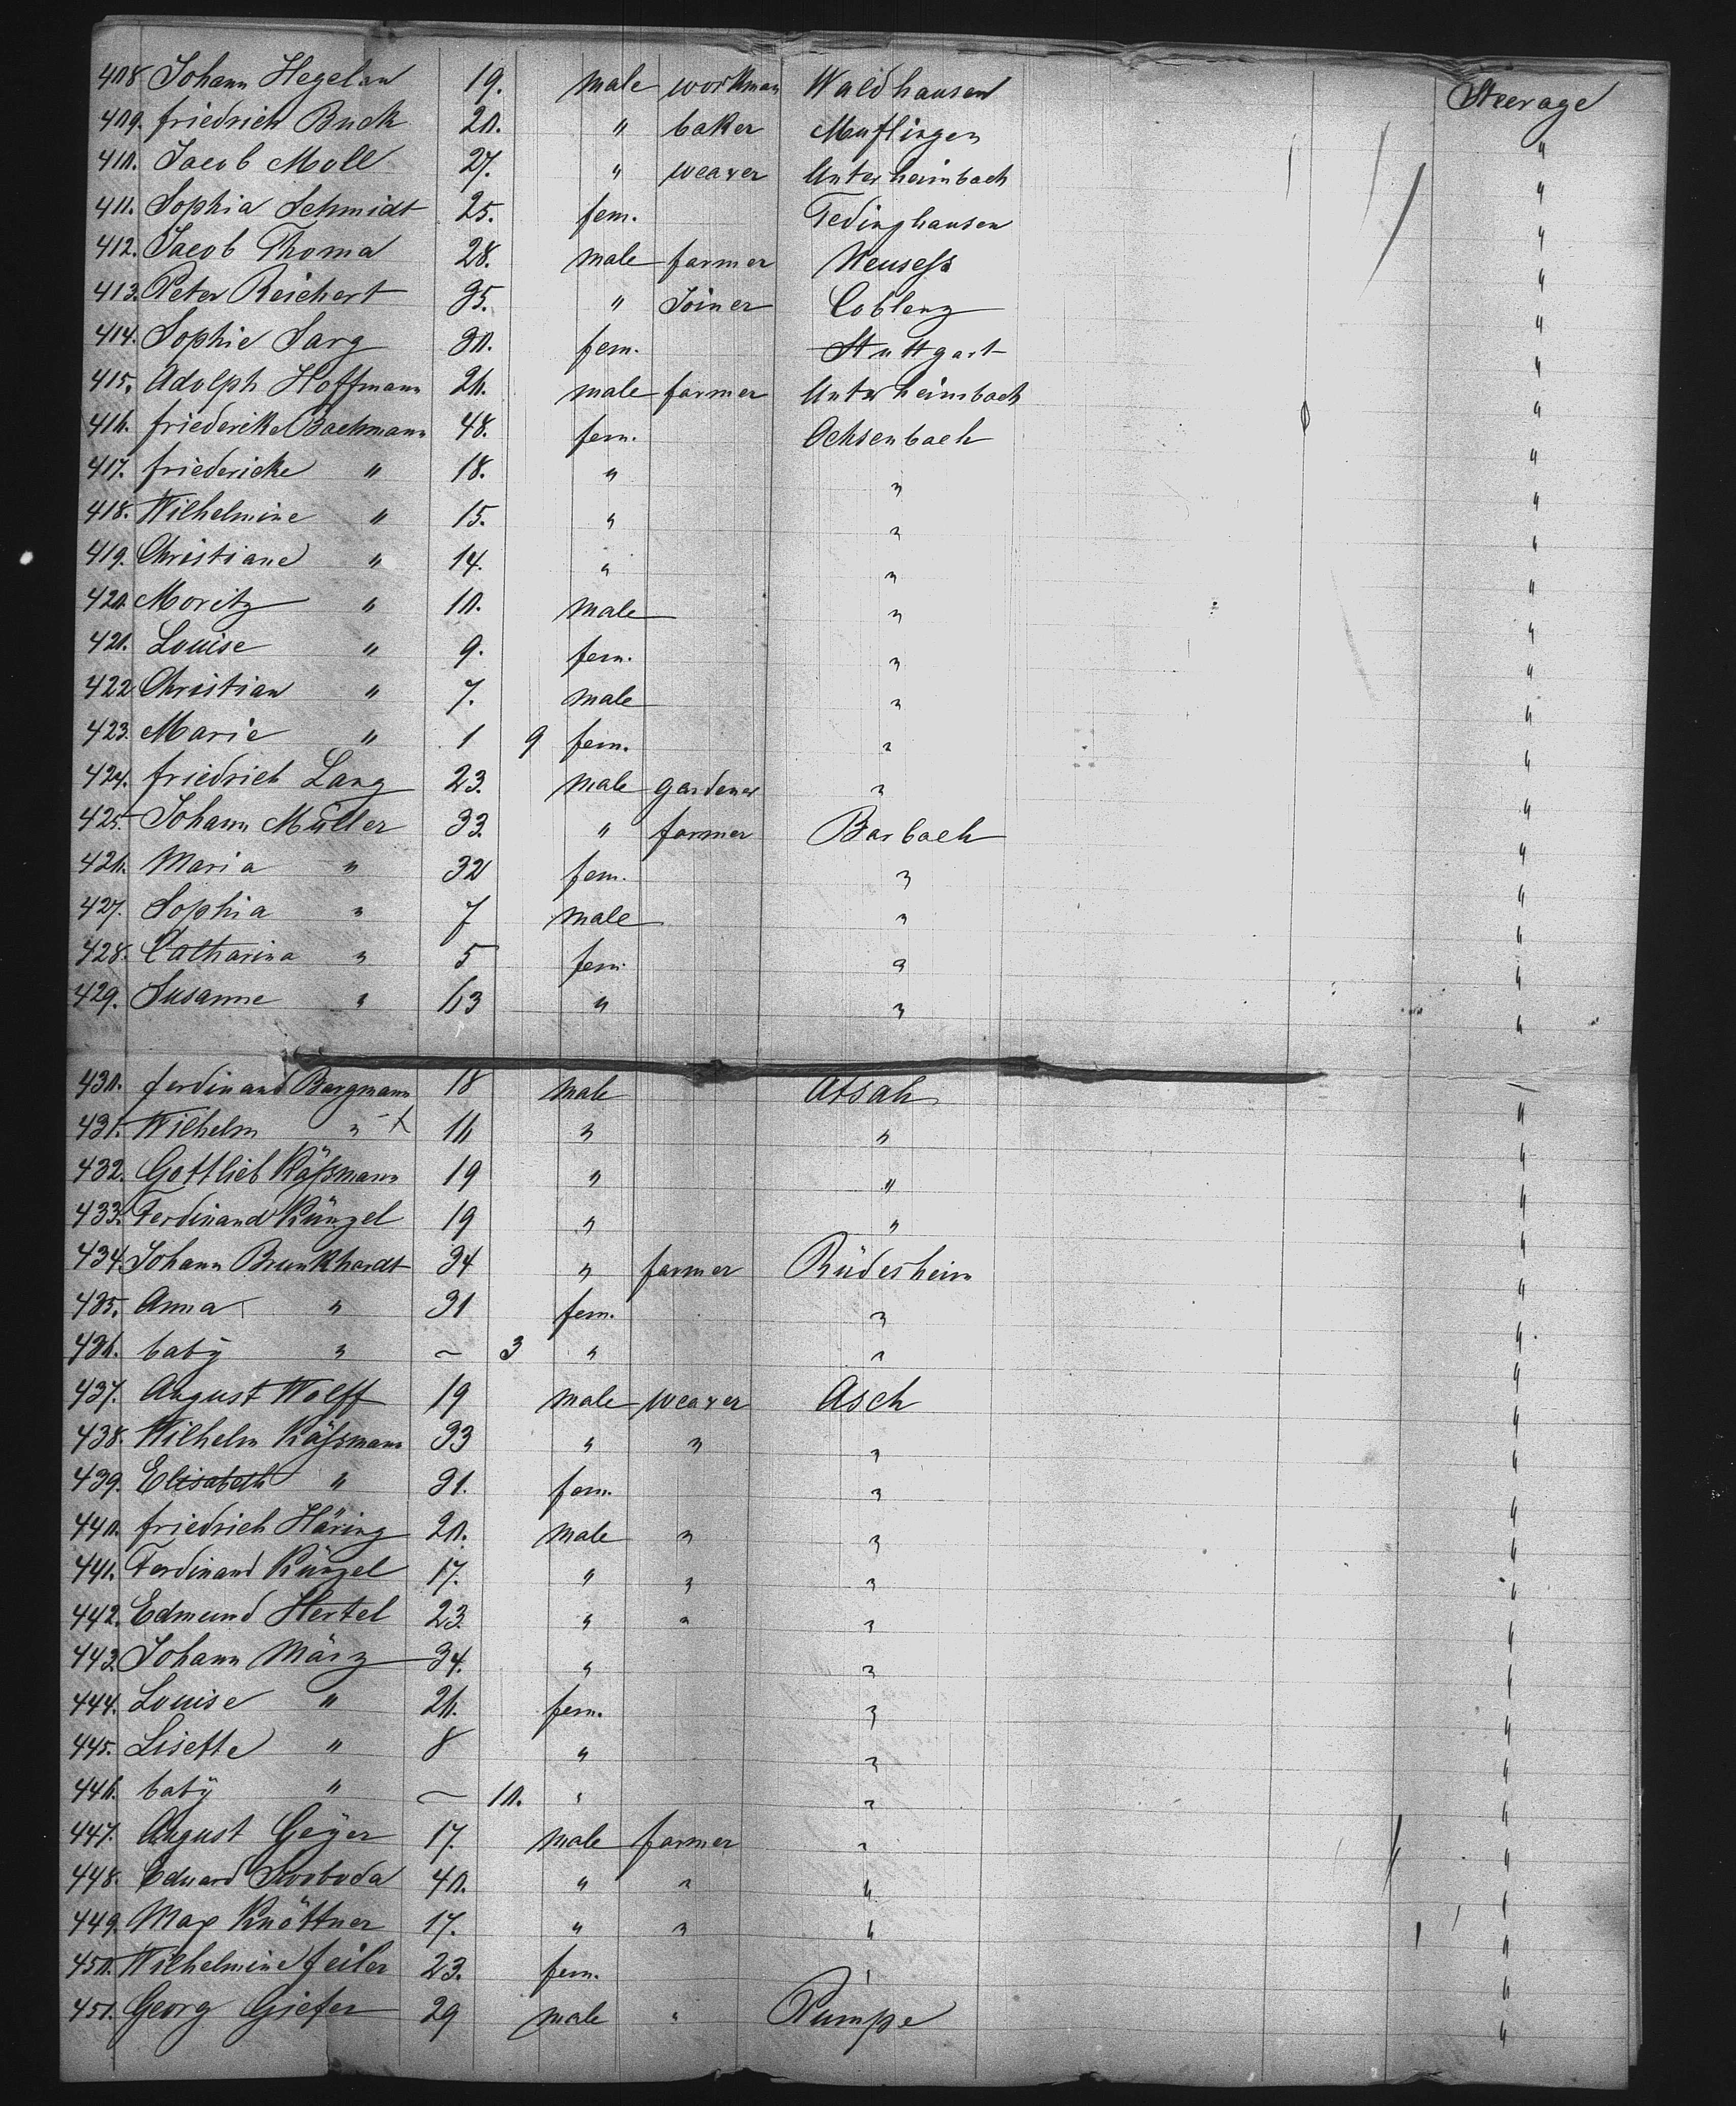 408 Johann Hegelau 19. male workman Waldhausen Steerage
409. friedrich Buck 20. " baker Muflingen "
410. Jacob Moll 27. " weaver Unterheimbach "
411. Sophia Schmidt 25. fem. Tedinghausen "
412. Jacob Thoma 28. male farmer Neusess "
413. Peter Reichert 35. " Joiner Coblenz "
414. Sophie Sarg 30. fem. Stuttgart "
415. Adolph Hoffmann 26. male farmer Unterheimbach "
416. friedericke Bachmann 48. fem. Ochsenbach "
417. friedericke " 18. " " "
418. Wilhelmine " 15. " " "
419. Christiane " 14. " " "
420. Moritz " 10. male " "
421. Louise " 9. fem. " "
422 Christian " 7. male " "
423. Marie " 1 9 fem. " "
424. friedrich Lang 23. male gardener " "
425. Johann Müller 33. " farmer Barbach "
426. Maria " 32 fem. " "
427. Sophia " 7 male " "
428. Catharina " 5 fem. " "
429. Susanne " " " "
430. ferdinand Bergmann 18 male Atsah "
431. Wilhelm " 16 " " "
432. Gottlieb Käßmann 19 " " "
433. Ferdinand Künzel 19 " " "
434. Johann Brunkhardt 34 " farmer Rüdesheim "
435. Anna " 31 fem. " "
436. baby " ~ 3 " " "
437. August Wolff 19 male weaver Asch "
438. Wilhelm Käßmann 33 " " " "
439. Elisabeth " 31. fem. " "
440. friedrich Häring 20. male " " "
441. Ferdinand Künzel 17. " " " "
442. Edmund Hertel 23. " " " "
443. Johann März 34. " " "
444. Louise " 26. fem. " "
445. Lisette " 8 " " "
446. baby " ~ 10. " " "
447. August Geyer 17. male farmer " "
448. Eduard Svoboda 40. " " " "
449. Max Knöttner 17. " " " "
450. Wilhelmine feiler 23. fem. " "
451. Georg Giefer 29 male " Pumpe "